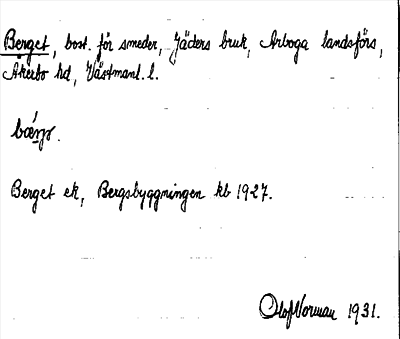 Berget, bost. för smeder, Jäders bruk, Arboga landsförs,
Åkerbo hd, Västmanl. l.
Berget ek, Bergsbyggningen kb 1927.
Olof Norman 1931.